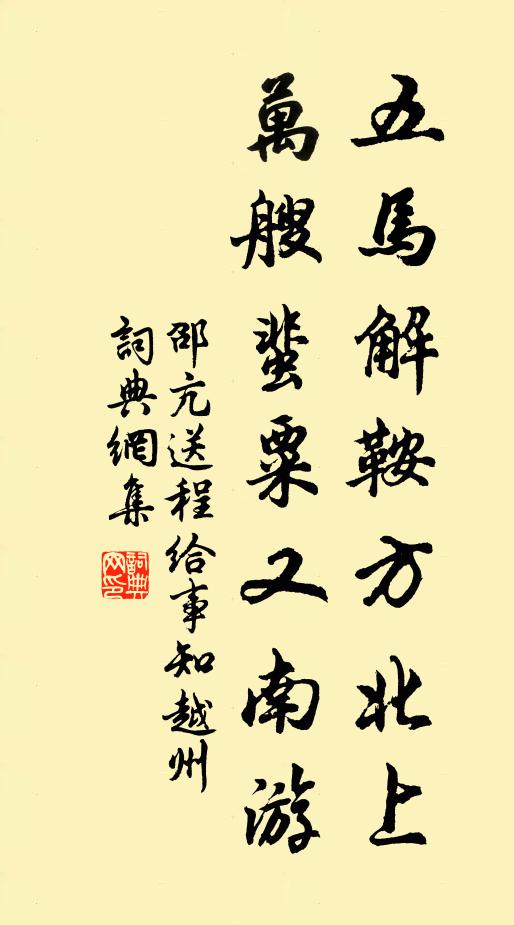 五馬解鞍方北上
萬艘蜚粟又南游
邵亢送程給事知越州
詞典網集
詞典
网印